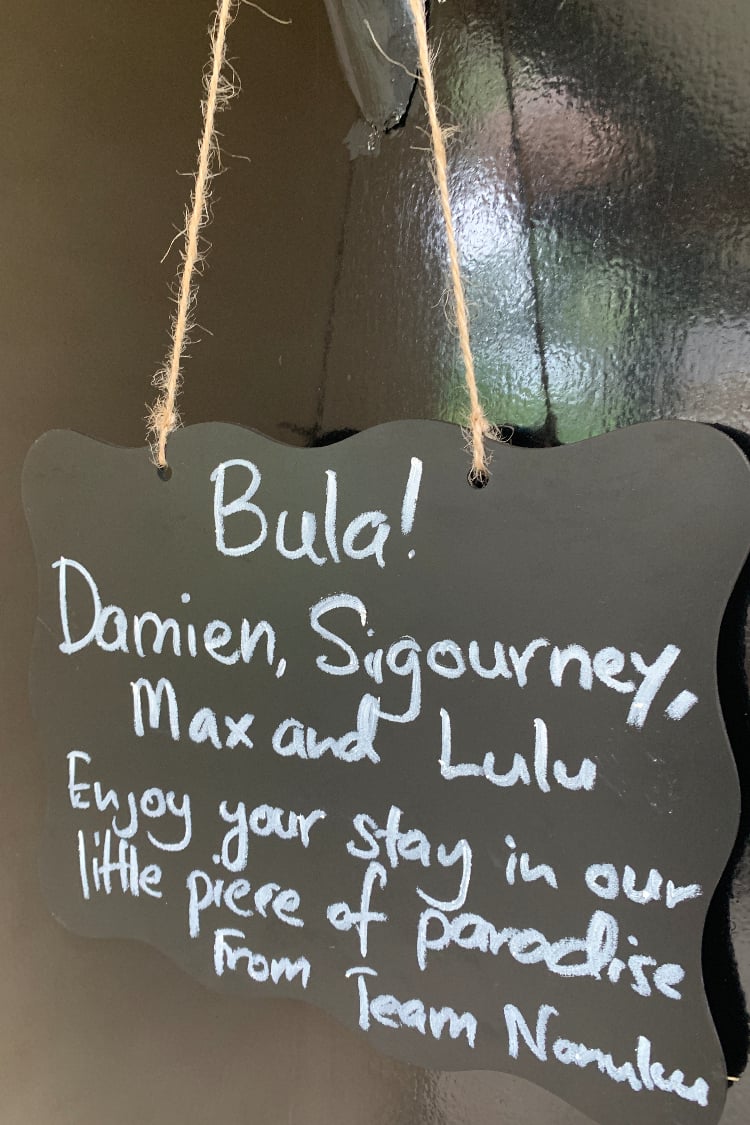 Bula!
Damien, Sigourney,
Max and Lulu
Enjoy your stay in our
little piece of paradise
From Team Nanuku